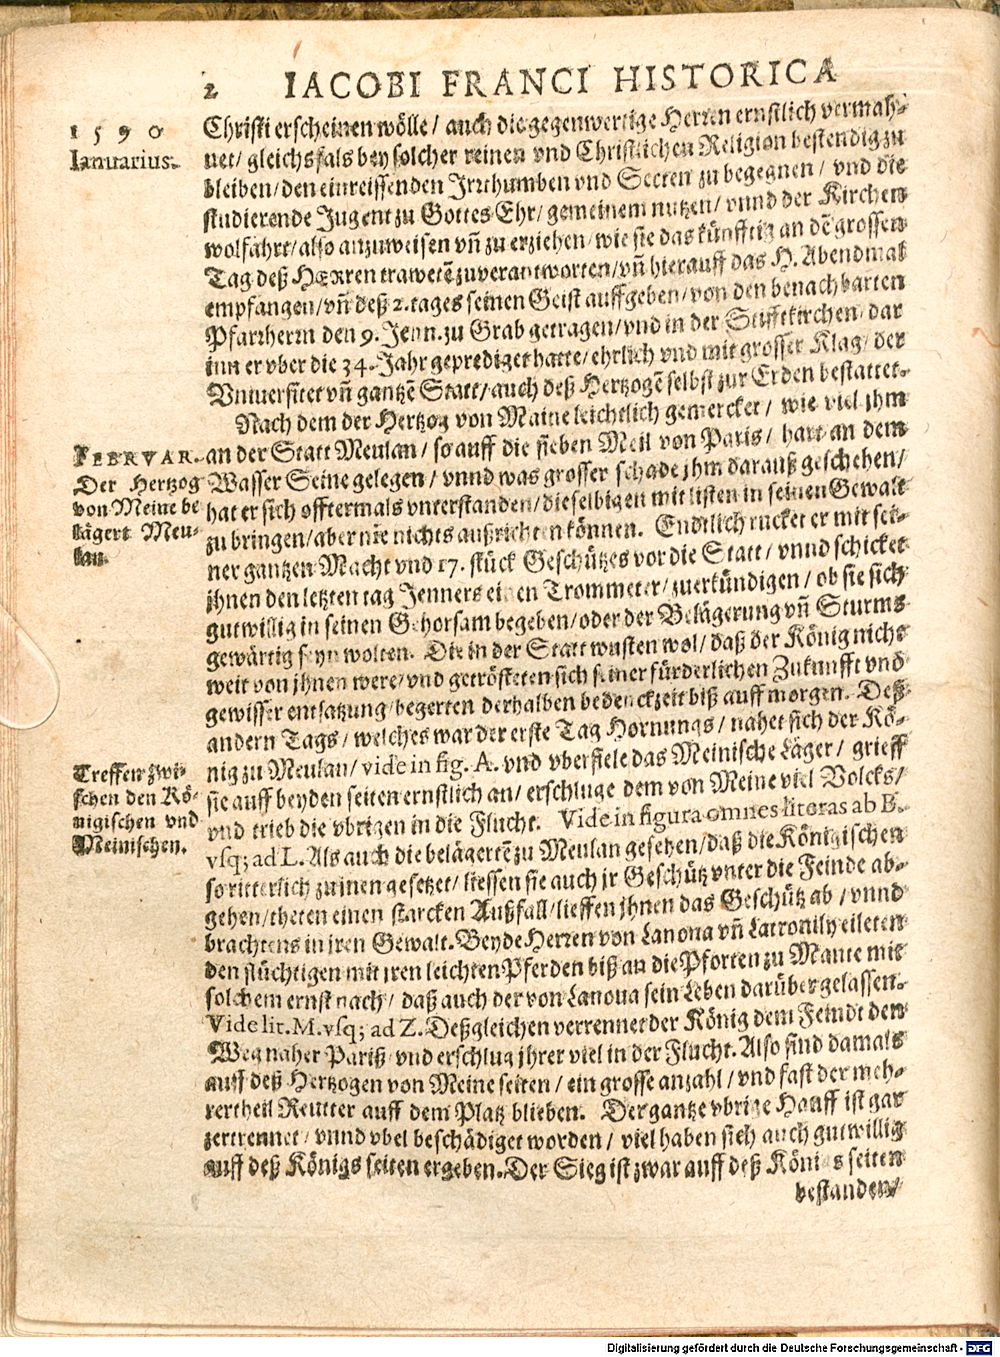 2 IACOBI FRANCI HISTORICA
1590
Ianuarius.
Christi erscheinen wölle / auch die gegenwertige Herren ernstlich vermah-
net / gleichsfals bey solcher reinen vnd Christlichen Religion bestendig zu
bleiben / den einreissenden Irrthumben vnd Secten zu begegnen / vnd die
studierende Jugent zu Gottes Ehr / gemeinem nutzen / vnnd der Kirchen
wolfahrt / also anzuweisen vñ zu erziehen / wie sie das künfftig an dē grossen
Tag deß HERREN trawetē zuverantworten / vñ hierauff das H. Abendmal
empfangen / vñ deß 2. tages seinen Geist auffgeben / von den benachbarten
Pfarrherrn den 9. Jenn. zu Grab getragen / vnd in der Stifftkirchen / dar
inn er vber die 34. Jahr geprediget hatte / ehrlich vnd mit grosser Klag / der
Vniuersitet vñ gantzē Statt / auch deß Hertzogē selbst zur Erden bestattet.
Nach dem der Hertzog von Maine leichtlich gemercket / wie viel jhm
FEBRVAR.
an der Statt Meulan / so auff die sieben Meil von Paris / hart an dem
Der Hertzog
von Meine be
lägert Meu-
lan.
Wasser Seine gelegen / vnnd was grosser schade jhm darauß geschehen /
hat er sich offtermals vnterstanden / dieselbigen mit listen in seinen Gewalt
zu bringen / aber nie nichts außrichten können. Endtlich rucket er mit sei-
ner gantzen Macht vnd 17. stück Geschützes vor die Statt / vnnd schicket
jhnen den letzten tag Jenners einen Trommeter / zuerkündigen / ob sie sich
gutwillig in seinen Gehorsam begeben / oder der Belägerung vñ Sturms
gewärtig seyn wolten. Die in der Statt wusten wol / daß der König nicht
weit von jhnen were / vnd getrösteten sich seiner fürderlichen Zukunfft vnd
gewisser entsatzung / begerten derhalben bedenckzeit biß auff morgen. Deß
andern Tags / welches war der erste Tag Hornungs / nahet sich der Kö-
Treffen zwi-
schen den Kö-
nigischen vnd
Meinischen.
nig zu Meulan / vide in fig. A. vnd vberfiele das Meinische Läger / grieff
sie auff beyden seiten ernstlich an / erschluge dem von Meine viel Volcks /
vnd trieb die vbrigen in die Flucht. Vide in figura omnes literas ab B.
vsq; ad L. Als auch die belägertē zu Meulan gesehen / daß die Königischen
so ritterlich zu inen gesetzet / liessen sie auch jr Geschütz vnter die Feinde ab-
gehen / theten einen starcken Außfall / lieffen jhnen das Geschütz ab / vnnd
brachtens in jren Gewalt. Beyde Herren von Lanoua vñ Latronily eileten
den flüchtigen mit jren leichten Pferden biß an die Pforten zu Mante mit
solchem ernst nach / daß auch der von Lanoua sein Leben darüber gelassen.
Vide lit. M. vsq; ad Z. Deßgleichen verrennet der König dem Feindt den
Weg naher Pariß / vnd erschlug jhrer viel in der Flucht. Also sind damals
auff deß Hertzogen von Meine seiten / ein grosse anzahl / vnd fast der meh-
rertheil Reutter auff dem Platz blieben. Der gantze vbrige Hauff ist gar
zertrennet / vnnd vbel beschädiget worden / viel haben sich auch gutwillig
auff deß Königs seiten ergeben. Der Sieg ist zwar auff deß Königs seiten
bestanden /
Digitalisierung gefördert durch die Deutsche Forschungsgemeinschaft - DFG